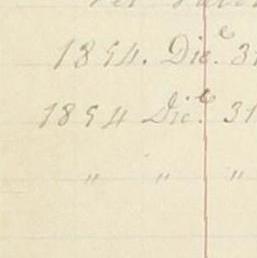 1894. Dic.e 31
1894 Dic.e 31
" " "